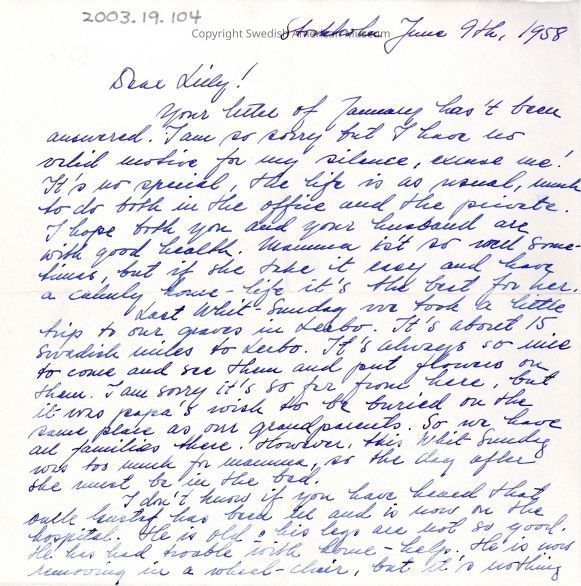 2003.19.104
Copyright Swedish American Museum
Stockholm June 9th, 1958
Dear Lilly!
Your letter of January has't been
answered. I am so sorry but I have no
valid motive for my silence, excuse me!
It's no special, the life is as usual, much
to do both in the office and the private.
I hope both you and your husband are
with good health. Mamma is't so well some-
times, but if she take it easy and have
a calmly home-life it's the best for her.
Last Whit-Sunday we took a little
trip to our graves in Leebo. It's about 15
Swedish miles to Leebo. It's always so nice
to come and see them and put flowers on
them. I am sorry it's so far from here, but
it was papa's wish to be buried on the
same place as our grandparents. So we have
all families there. However, this Whit Sunday
was too much for mamma, so the day after
she must be in the bed.
I don't know if you have heard that
uncle Gustaf has been ill and is now on the
hospital. He is old & his legs are not so good.
He has had trouble with home-help. He is now
removing in a wheel-chair, but it's nothing